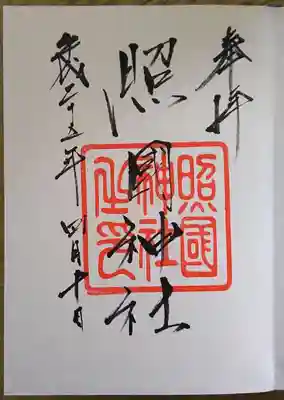 奉拝
照国神社
照國神社之印
平成二十五年 四月十日